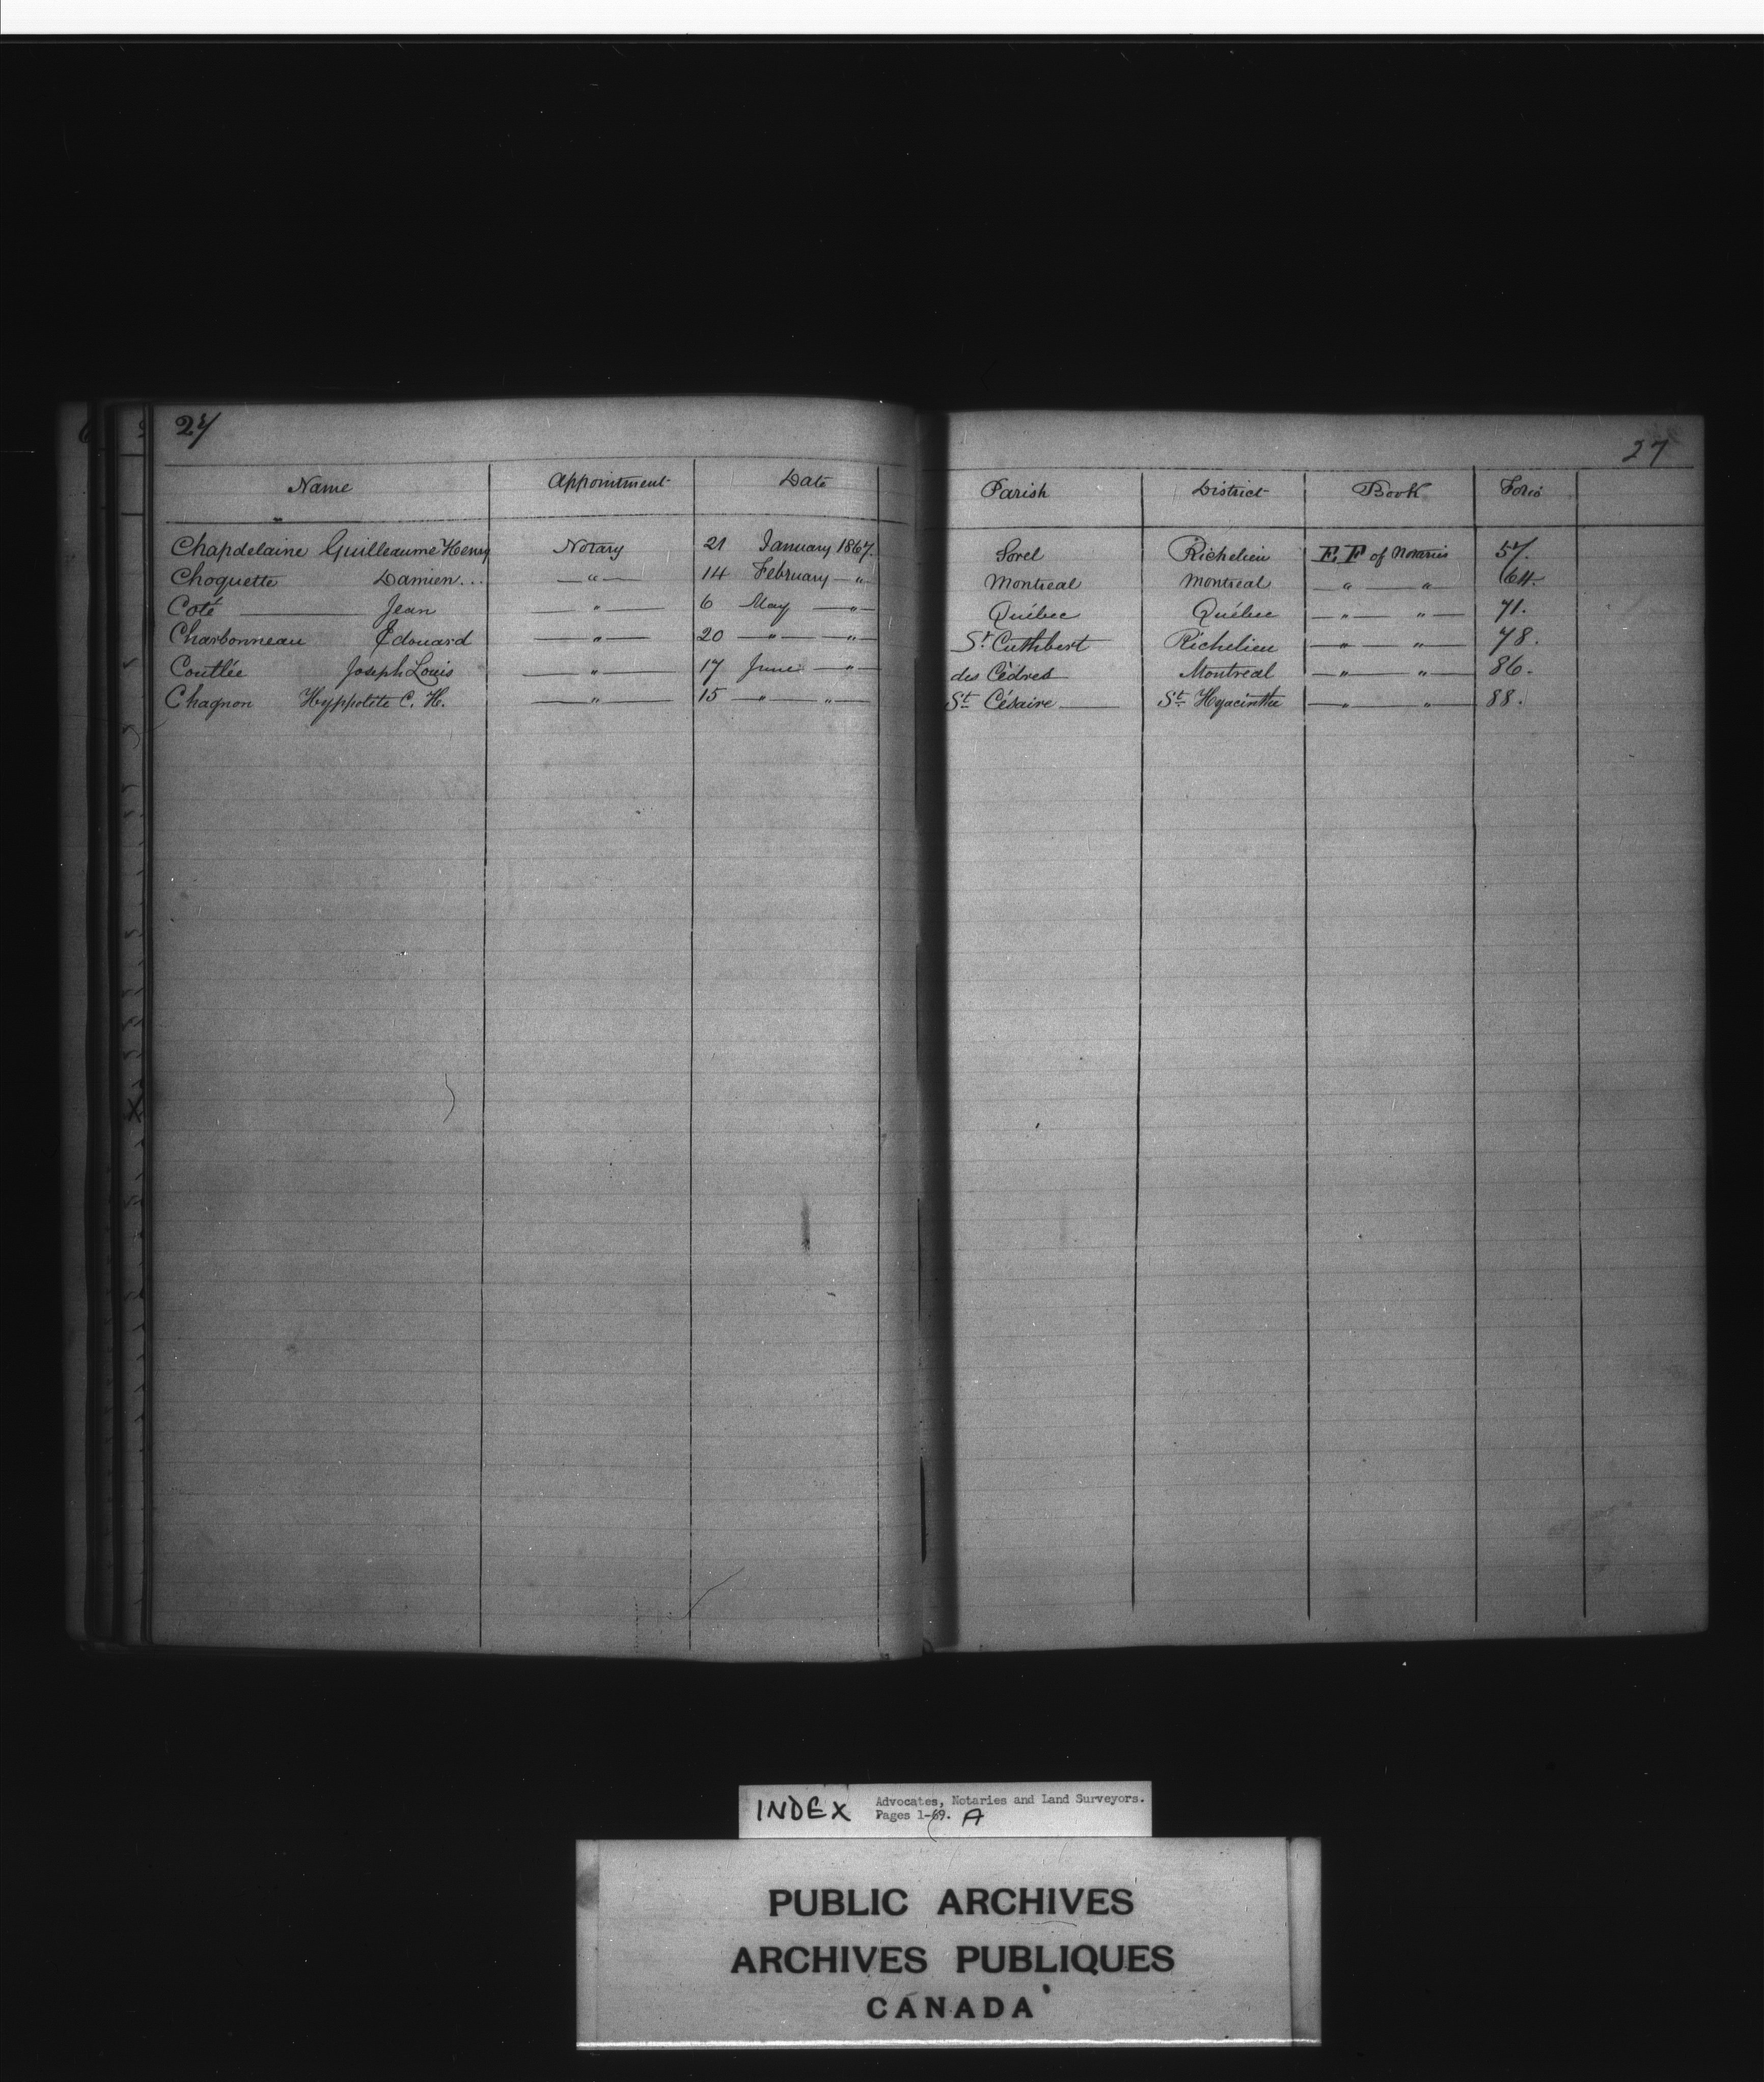 27 27
Name Appointment Date Parish District Book Folio
Chapdelaine Guilleaume Henry Notary 21 January 1867. Sorel Richelieu F. F of Notaries 57.
Choquette Damien... —"— 14 February —"— Montreal Montreal —"— —"— 64.
Coté —— Jean —"— 6 May —"— Québec Québec —"— —"— 71.
Charbonneau Edouard —"— 20 —"— —"— St. Cuthbert Richelieu —"— —"— 78.
Coutlée Joseph Louis —"— 17 June —"— des Cèdres Montreal —"— —"— 86.
Chagnon Hyppolite C. H. —"— 15 —"— —"— St. Césaire —— St. Hyacinthe —"— —"— 88.
INDEX Advocates, Notaries and Land Surveyors.
Pages 1-69. A
PUBLIC ARCHIVES
ARCHIVES PUBLIQUES
CANADA